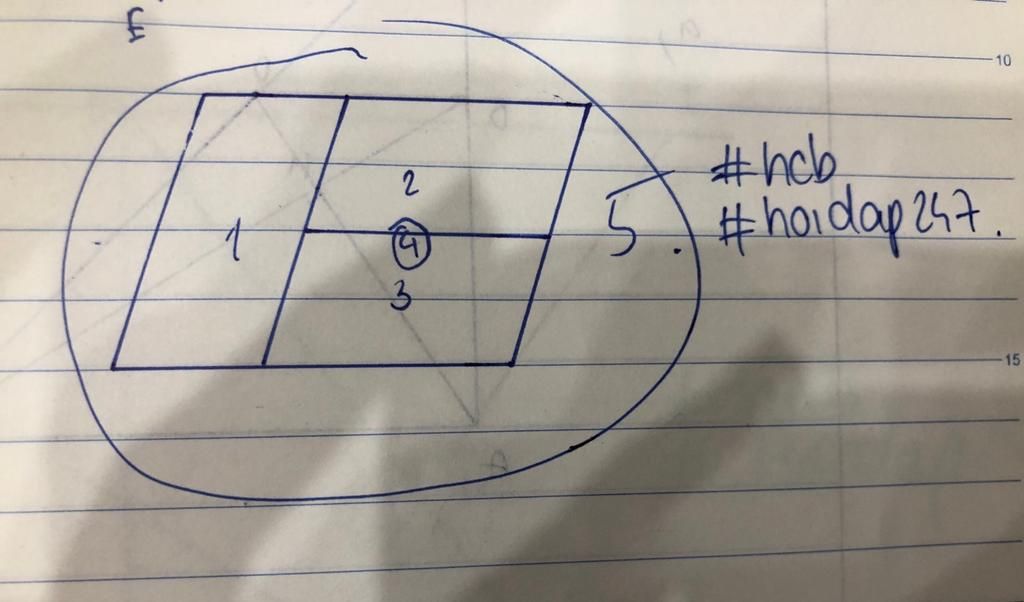 E
10
2
1
4
3
5.
#hcb
#hoidap247.
15